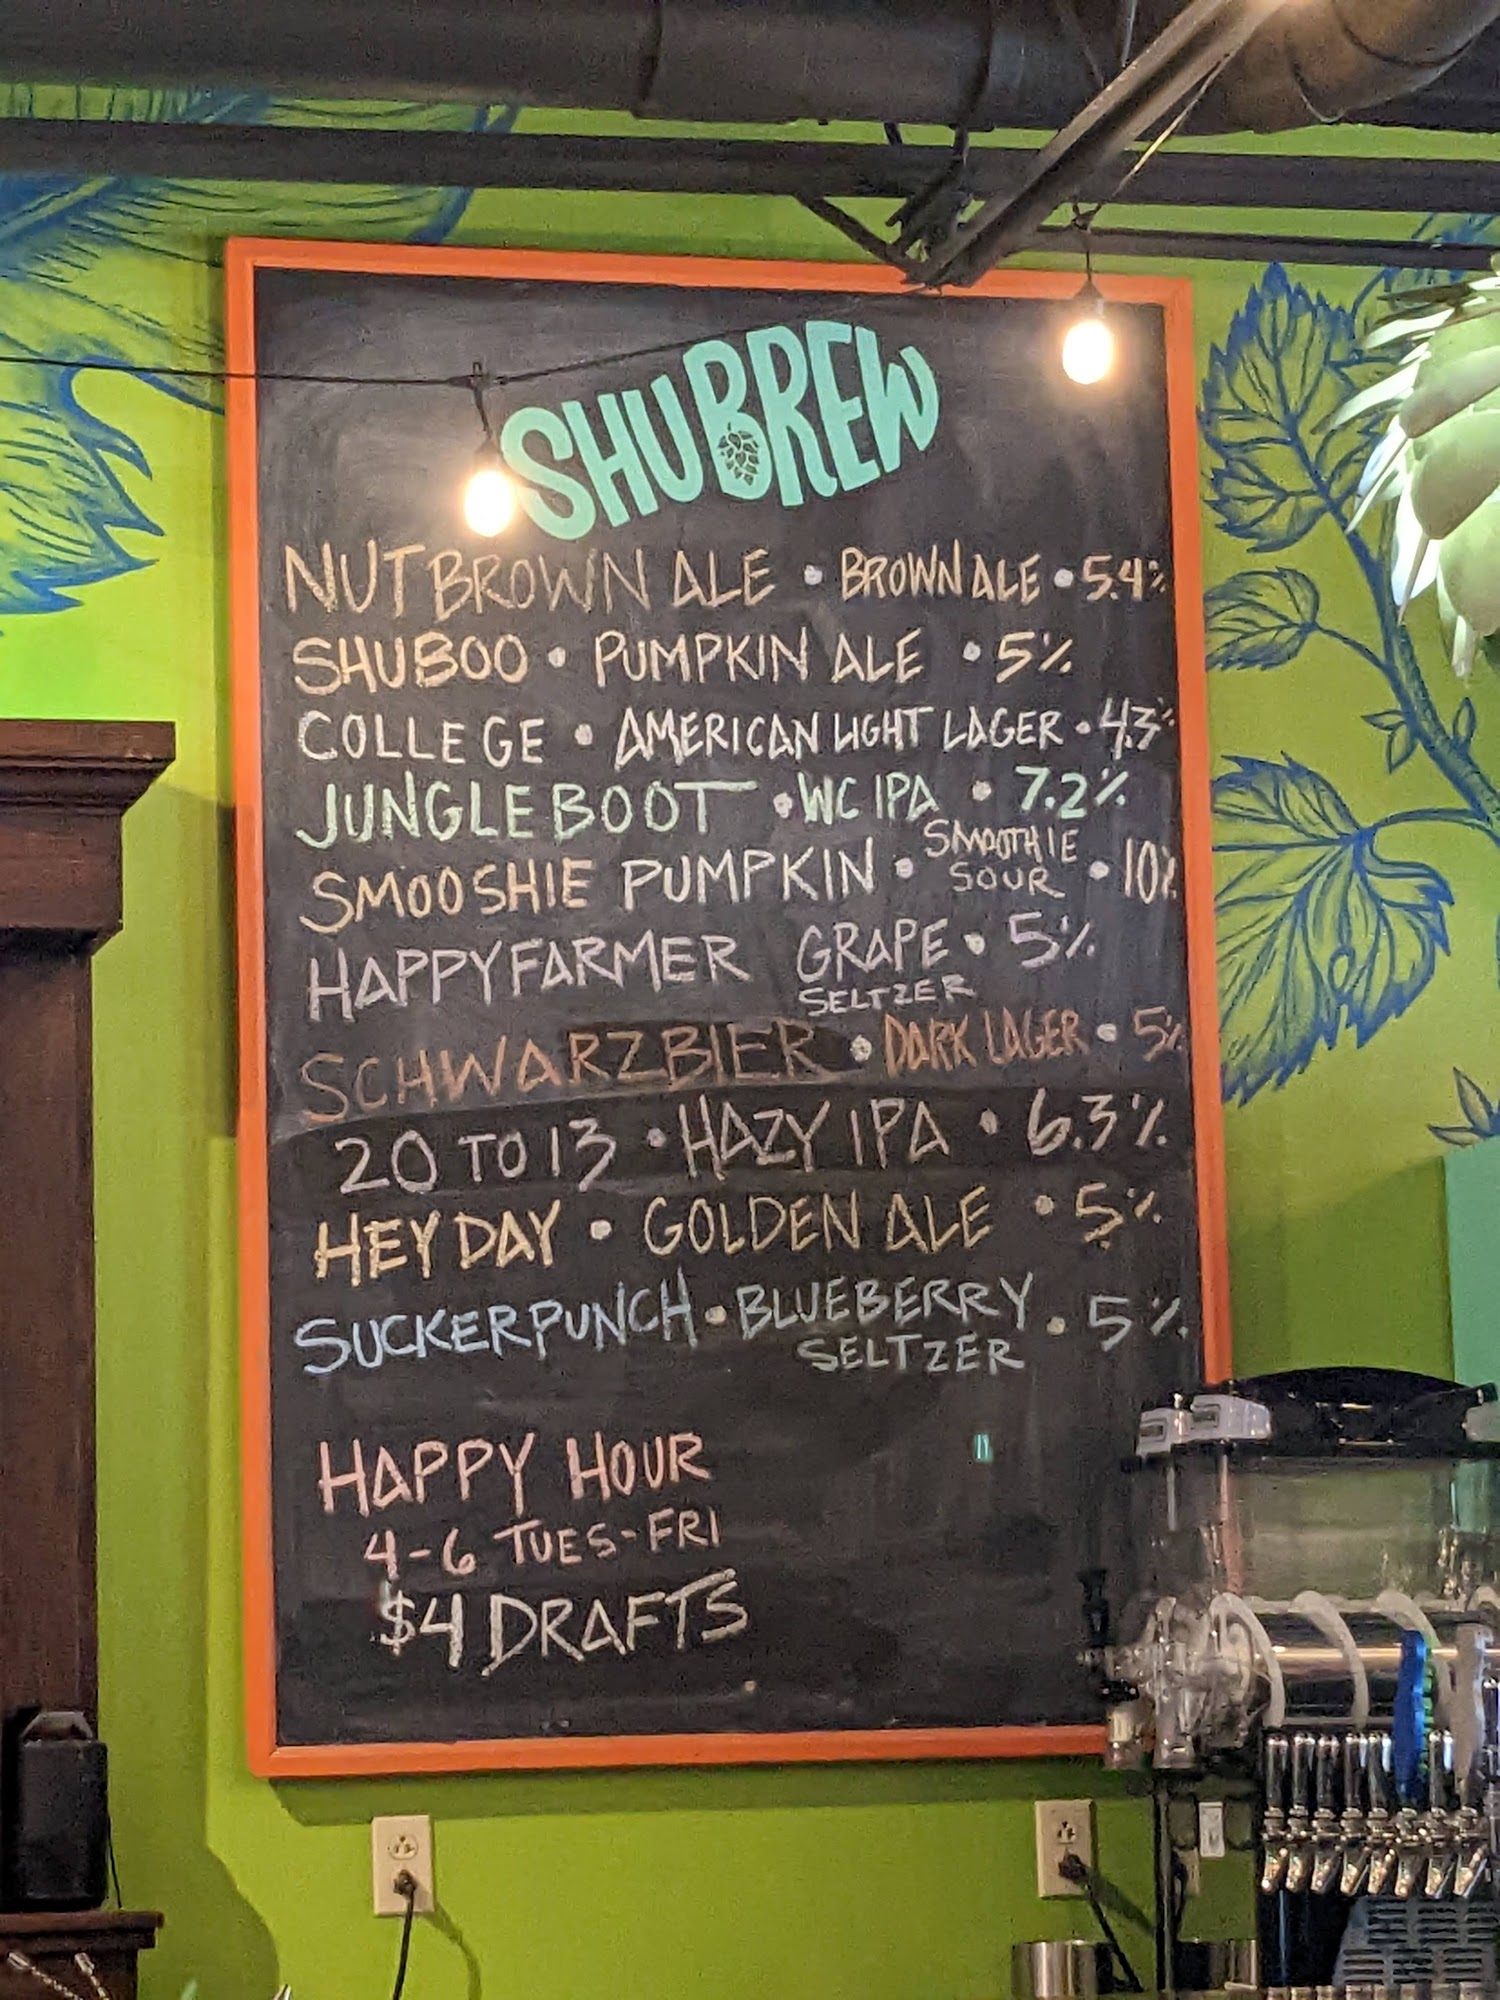 SHUBREW
NUT BROWN ALE • BROWN ALE • 5.4%
SHUBOO • PUMPKIN ALE • 5%
COLLEGE • AMERICAN LIGHT LAGER • 4.3%
JUNGLE BOOT • WC IPA • 7.2%
SMOOSHIE PUMPKIN • SMOOTHIE SOUR • 10%
HAPPY FARMER GRAPE SELTZER • 5%
SCHWARZBIER • DARK LAGER • 5%
20 TO 13 • HAZY IPA • 6.3%
HEYDAY • GOLDEN ALE • 5%
SUCKERPUNCH • BLUEBERRY SELTZER • 5%
HAPPY HOUR
4-6 TUES-FRI
$4 DRAFTS